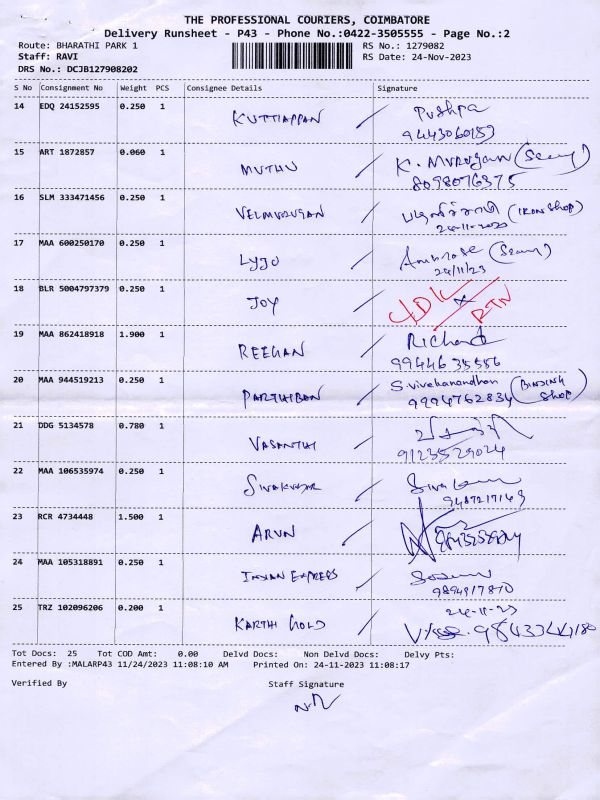 THE PROFESSIONAL COURIERS, COIMBATORE
Delivery Runsheet - P43 - Phone No.:0422-3505555 - Page No.:2
Route: BHARATHI PARK 1 RS No.: 1279082
Staff: RAVI RS Date: 24-Nov-2023
DRS No.: DCJB127908202
S No Consignment No Weight PCS Consignee Details Signature
14 EDQ 24152595 0.250 1 KUTTIAPPAN Pushpa
9443060153
15 ART 1872857 0.060 1 MUTHU K. Murugan
8098076375
16 SLM 333471456 0.250 1 VELMURUGAN (IRON SHOP)
24-11-2023
17 MAA 600250170 0.250 1 LYJO Ambrose
24/11/23
18 BLR 5004797379 0.250 1 JOY RTN
19 MAA 862418918 1.900 1 REEGAN Richard
99446 35556
20 MAA 944519213 0.250 1 PARTHIBAN S.vivekanandhan (BINDING Shop)
9994762834
21 DDG 5134578 0.780 1 VASANTHI
9123529024
22 MAA 106535974 0.250 1 SIVAKUMAR
9487217163
23 RCR 4734448 1.500 1 ARUN
24 MAA 105318891 0.250 1 INDIAN EXPRESS
9894917870
25 TRZ 102096206 0.200 1 KARTHI GOLD 24-11-23
Tot Docs: 25 Tot COD Amt: 0.00 Delvd Docs: Non Delvd Docs: Delvy Pts:
Entered By :MALARP43 11/24/2023 11:08:10 AM Printed On: 24-11-2023 11:08:17
Verified By Staff Signature